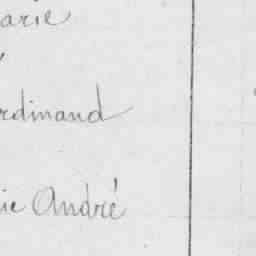 arie
rdinand
ie André